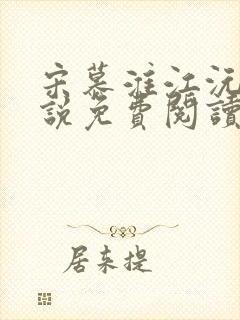 宋慕淮江沅
說免費閱讀
居来提